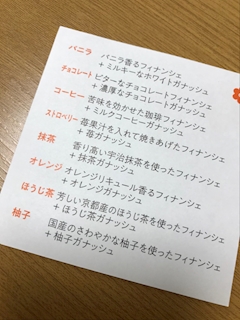 バニラ バニラ香るフィナンシェ
+ ミルキーなホワイトガナッシュ
チョコレート ビターなチョコレートフィナンシェ
+ 濃厚なチョコレートガナッシュ
コーヒー 苦味を効かせた珈琲フィナンシェ
+ ミルクコーヒーガナッシュ
ストロベリー 苺果汁を入れて焼きあげたフィナンシェ
+ 苺ガナッシュ
抹茶 香り高い宇治抹茶を使ったフィナンシェ
+ 抹茶ガナッシュ
オレンジ オレンジリキュール香るフィナンシェ
+ オレンジガナッシュ
ほうじ茶 芳しい京都産のほうじ茶を使ったフィナンシェ
+ ほうじ茶ガナッシュ
柚子 国産のさわやかな柚子を使ったフィナンシェ
+ 柚子ガナッシュ